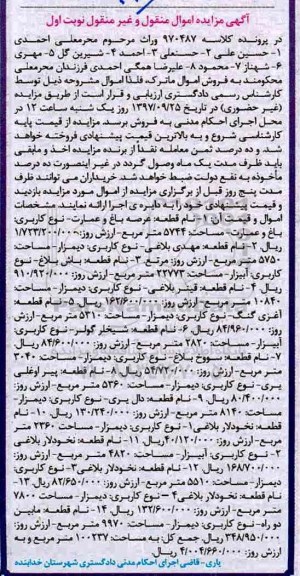 آگهی مزایده اموال منقول و غیر منقول نوبت اول
در پرونده کلاسه ۹۷۰۴۸۷ وراث مرحوم محرمعلی احمدی
۱- حسین علی ۲- حسنعلی ۳- احمد ۴- شیرین گل ۵- مهری
۶- شهناز ۷- محمود ۸- علیرضا همگی احمدی فرزندان محرمعلی
محکومند به فروش اموال ماترک، فلذا اموال مشروحه ذیل توسط
کارشناس رسمی دادگستری ارزیابی و قرار است از طریق مزایده
(غیر حضوری) در تاریخ ۱۳۹۷/۰۹/۲۵ روز یک شنبه ساعت ۱۲ در
محل اجرای احکام مدنی به فروش برسد. مزایده از قیمت پایه
کارشناسی شروع و به بالاترین قیمت پیشنهادی فروخته خواهد
شد و ده درصد ثمن معامله نقدا از برنده مزایده اخذ و مابقی
باید ظرف مدت یک ماه وصول گردد در غیر اینصورت ده درصد
مأخوذه به نفع دولت ضبط خواهد شد. خریداران می توانند ظرف
مدت پنج روز قبل از برگزاری مزایده از اموال مورد مزایده بازدید
و قیمت پیشنهادی خود را به دایره ی اجرا ارائه نمایند. مشخصات
اموال و قیمت آن: ۱- نام قطعه: عرصه باغ و عمارت- نوع کاربری:
باغ و عمارت- مساحت: ۵۷۴۴ متر مربع- ارزش روز: ۱/۷۲۳/۲۰۰/۰۰۰
ریال ۲- نام قطعه: مهدی بلاغی- نوع کاربری: دیمزار- مساحت:
۵۷۵۰ متر مربع- ارزش روز: مرتع ۳- نام قطعه: باش بلاغ- نوع
کاربری: آبیزار- مساحت: ۲۲۷۷۳ متر مربع- ارزش روز: ۹۱۰/۹۲۰/۰۰۰
ریال ۴- نام قطعه: قیتر بلاغی- نوع کاربری: دیمزار- مساحت:
۱۰۸۴۰ متر مربع- ارزش روز: ۱۶۲/۶۰۰/۰۰۰ ریال ۵- نام قطعه:
آغزی گنگ- نوع کاربری: دیمزار- مساحت: ۵۳۱۰ متر مربع- ارزش
روز: ۸۴/۹۶۰/۰۰۰ ریال ۶- نام قطعه: شیخلر گولر- نوع کاربری:
آبیزار- مساحت: ۲۸۲۰ متر مربع- ارزش روز: ۸۴/۶۰۰/۰۰۰ ریال
۷- نام قطعه: سووخ بلاغ- نوع کاربری: دیمزار- مساحت: ۳۰۴۰
متر مربع- ارزش روز: ۵۴/۷۲۰/۰۰۰ ریال ۸- نام قطعه: پیر اوغلی
یری- نوع کاربری: دیمزار- مساحت: ۵۳۶۰ متر مربع- ارزش روز:
۸۰/۴۰۰/۰۰۰ ریال ۹- نام قطعه: دال یری- نوع کاربری: دیمزار-
مساحت: ۸۱۴۰ متر مربع- ارزش روز: ۱۳۰/۲۴۰/۰۰۰ ریال ۱۰- نام
قطعه: نخودلار بلاغی۱- نوع کاربری: دیمزار- مساحت: ۲۳۶۰ متر
مربع- ارزش روز: ۴۰/۱۲۰/۰۰۰ ریال ۱۱- نام قطعه: نخودلار بلاغی
۲- نوع کاربری: آبیزار- مساحت: ۴۸۲۰ متر مربع- ارزش روز:
۱۶۸/۷۰۰/۰۰۰ ریال ۱۲- نام قطعه: نخودلار بلاغی۳- نوع کاربری:
دیمزار- مساحت: ۵۵۱۰ متر مربع- ارزش روز: ۸۲/۶۵۰/۰۰۰ ریال ۱۳-
نام قطعه: نخودلار بلاغی ۴- نوع کاربری: دیمزار- مساحت: ۷۸۰۰
متر مربع- ارزش روز: ۱۳۲/۶۰۰/۰۰۰ ریال ۱۴- نام قطعه: مابین
دو راه- نوع کاربری: دیمزار- مساحت: ۹۹۷۰ متر مربع- ارزش روز:
۳۴۸/۹۵۰/۰۰۰ ریال. جمع کل: به مساحت: ۱۰۰۲۳۷ متر مربع و به
ارزش: ۴/۰۰۴/۶۶۰/۰۰۰ ریال.
یاری- قاضی اجرای احکام مدنی دادگستری شهرستان خدابنده